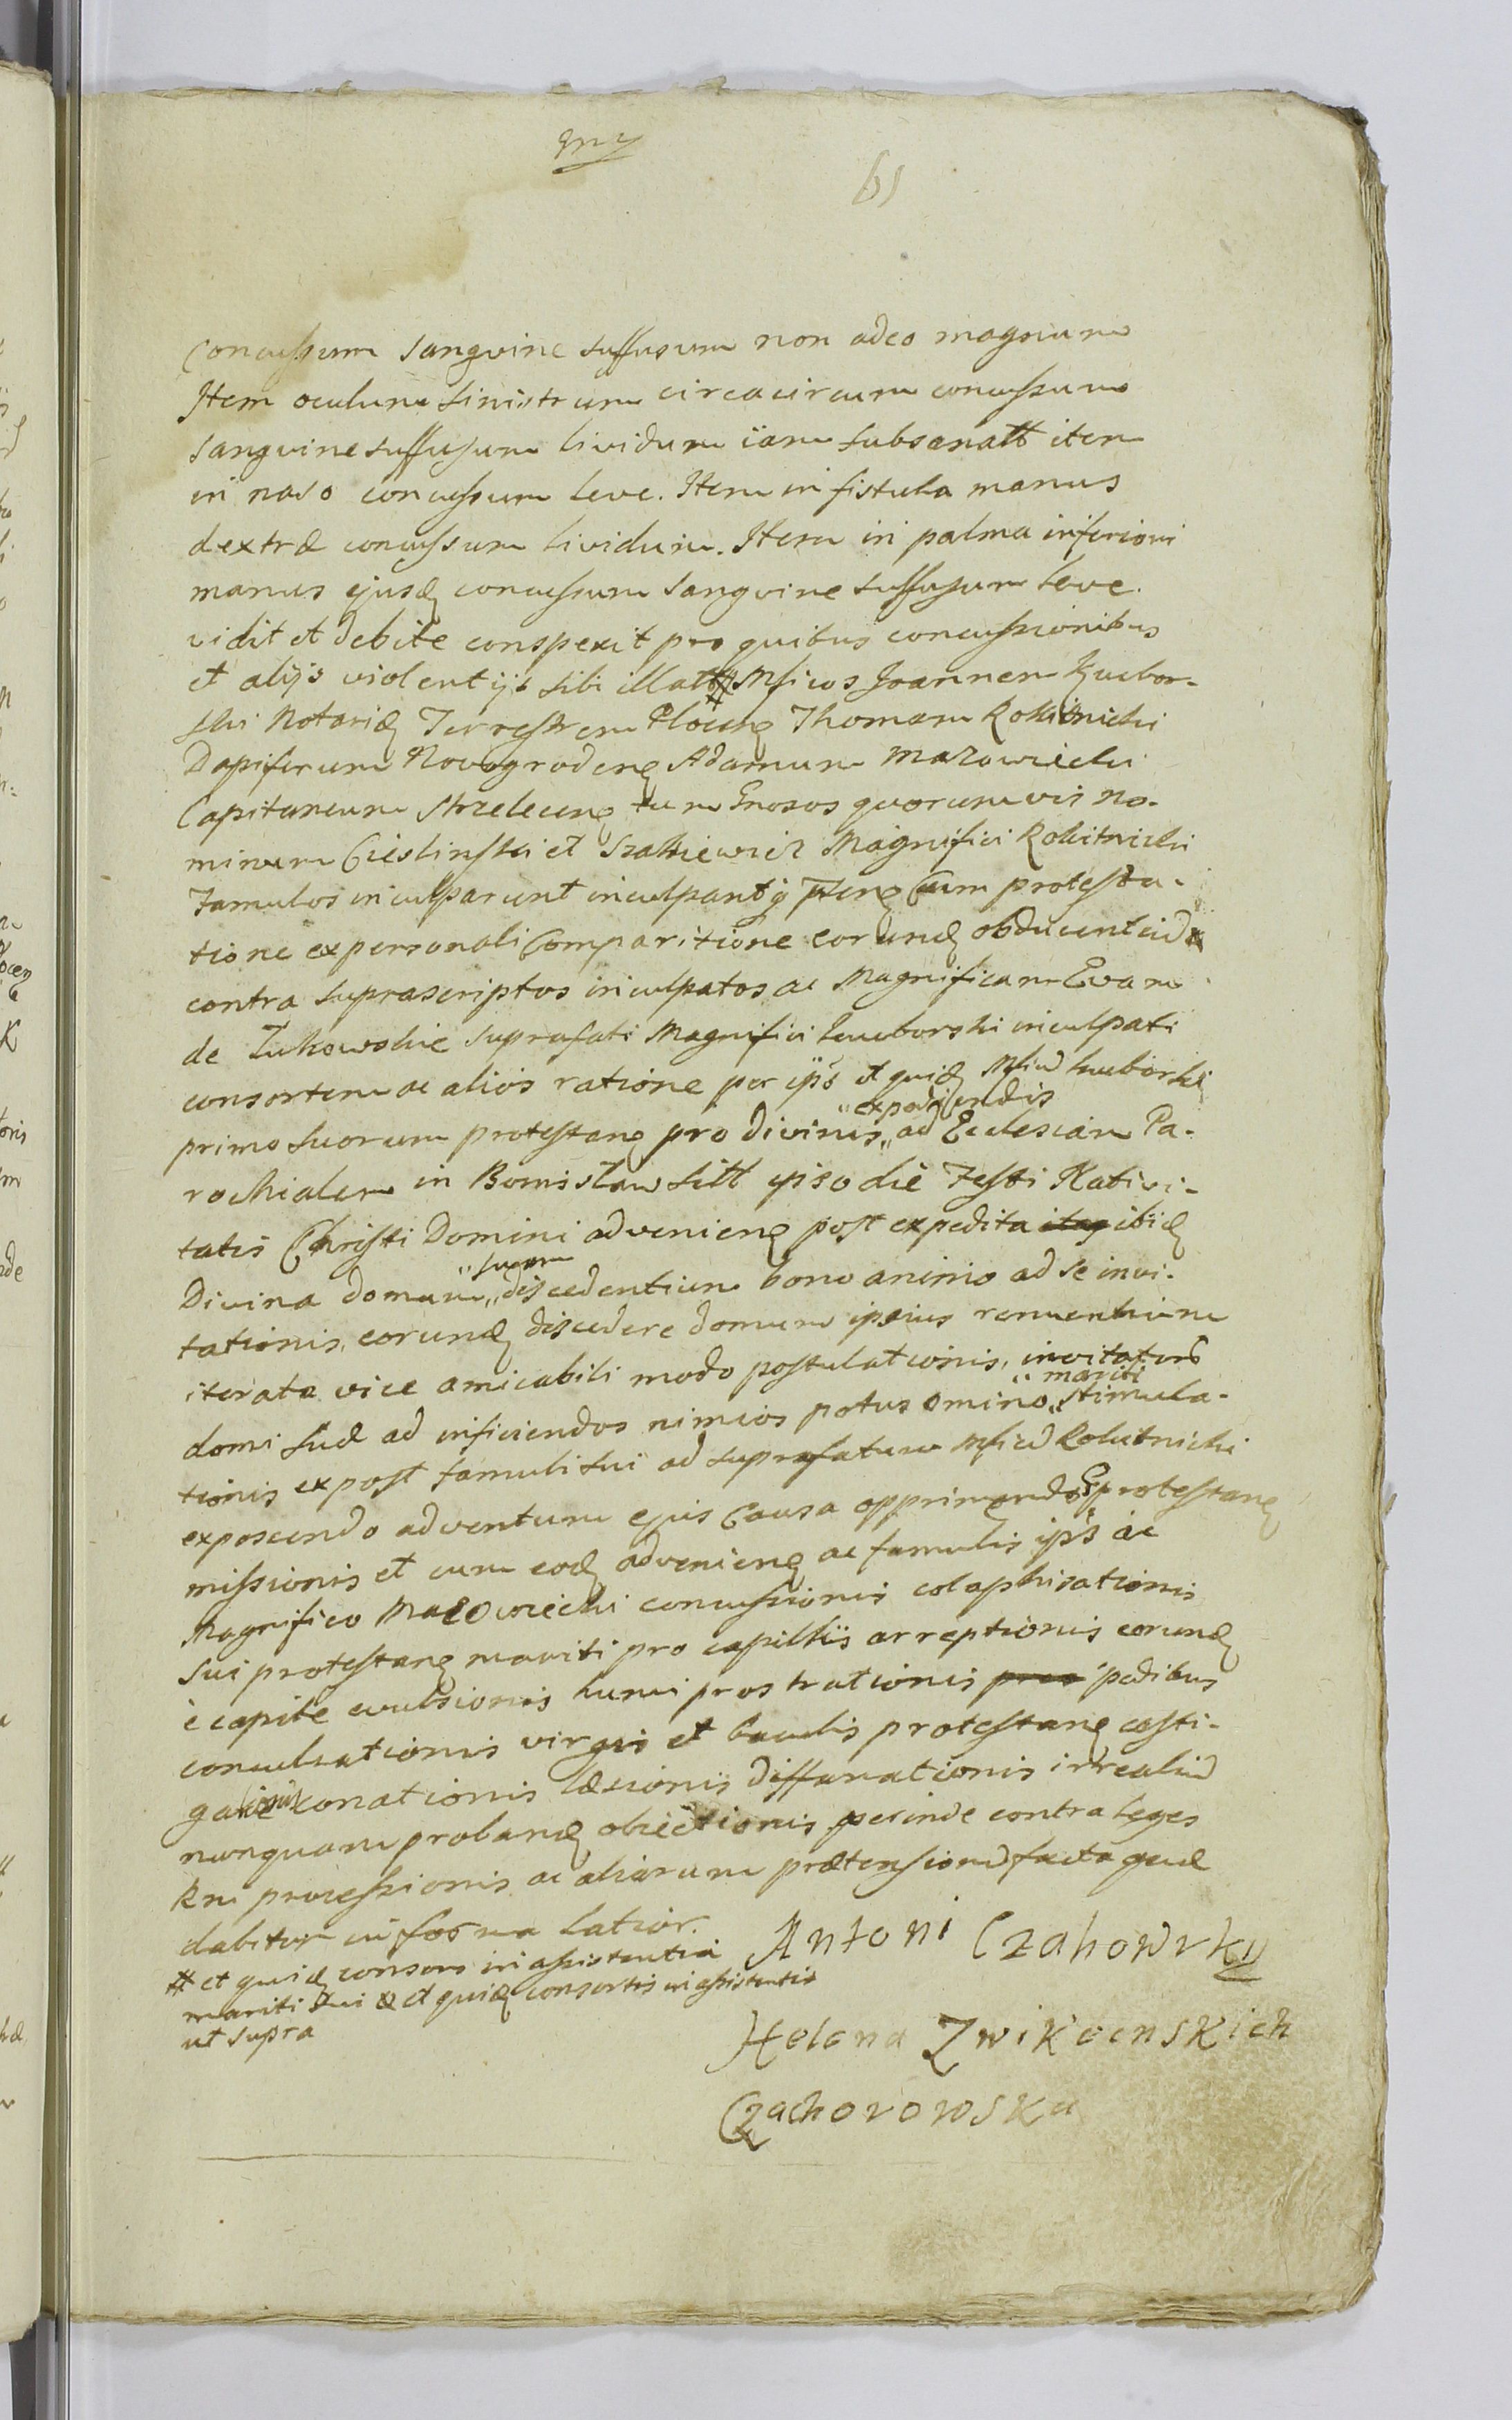 61
Concussum sangvine suffusum non adeo magnum
Item oculum sinistrum circacircum concussum
sangvine suffusum lividum iam subsanatt item
in naso concussum leve. Item in fistula manus
dextræ concussum lividum. Item in palma inferiori
manus ejusd concussum sangvine suffusum leve.
vidit et debite conspexit pro quibus concussionibus
et alijs violentijs sibi illatt # Mficos Joannem Kucbor-
ski Notariũ Terrestrem Plocens Thomam Rokitnicki
Dapiferum Novogrodens Adamum Mazowiecki
Capitaneum Strzelecens tum Gnosos quorumvis no-
minum Cieslinski et Szatkiewicz Magnifici Rokitnicki
Famulos inculparunt inculpantq Item Cum protesta-
tione ex personali Comparitione eorund obducent eid x
contra suprascriptos inculpatos ac Magnificam Evam
de Zukowskie suprafati Magnifici Kucborski inculpati
consortem ac alios ratione per ips et quid Mficũ Kucborski
expediendis
primo suorum protestans pro divinis " ad Ecclesiam Pa-
rochialem in Bonisław sitt ipso die Festi Nativi-
tatis Christi Domini adveniens post expedita ibid
suam
Divina domum " discedentium bono animo ad se invi-
tationis, eorund discedere domum ipsius renuentium
iterata vice amicabili modo postulationis, invitator
mariti
domi suæ ad inficiendos nimios potus omino " stimula-
tionis ex post famuli sui ad suprafatum Mficũ Rokitnicki
exposcendo adventum ejus Causa opprimendi protestans
missionis et cum eod adveniens ac famulis ips ac
Magnifico Mazowiecki concussionis colaphisationis
sui protestans mariti pro capillis arreptionis eorund
è capite evulsionis humi prostrationis pedibus
conculcationis virgis et baculis protestans casti-
gationis conationis læsionis diffamationis irrealiũ
nunquam proband obiectionis perinde contra leges
Rni processionis ac aliarum prætensionũ facta quæ
dabitur in forma latior.
# et quid consors in assistentia
mariti sui & et quid consortis in assistentia
ut supra
Antoni Czahowrky
Helena Zwikcenskich
Czachorowska